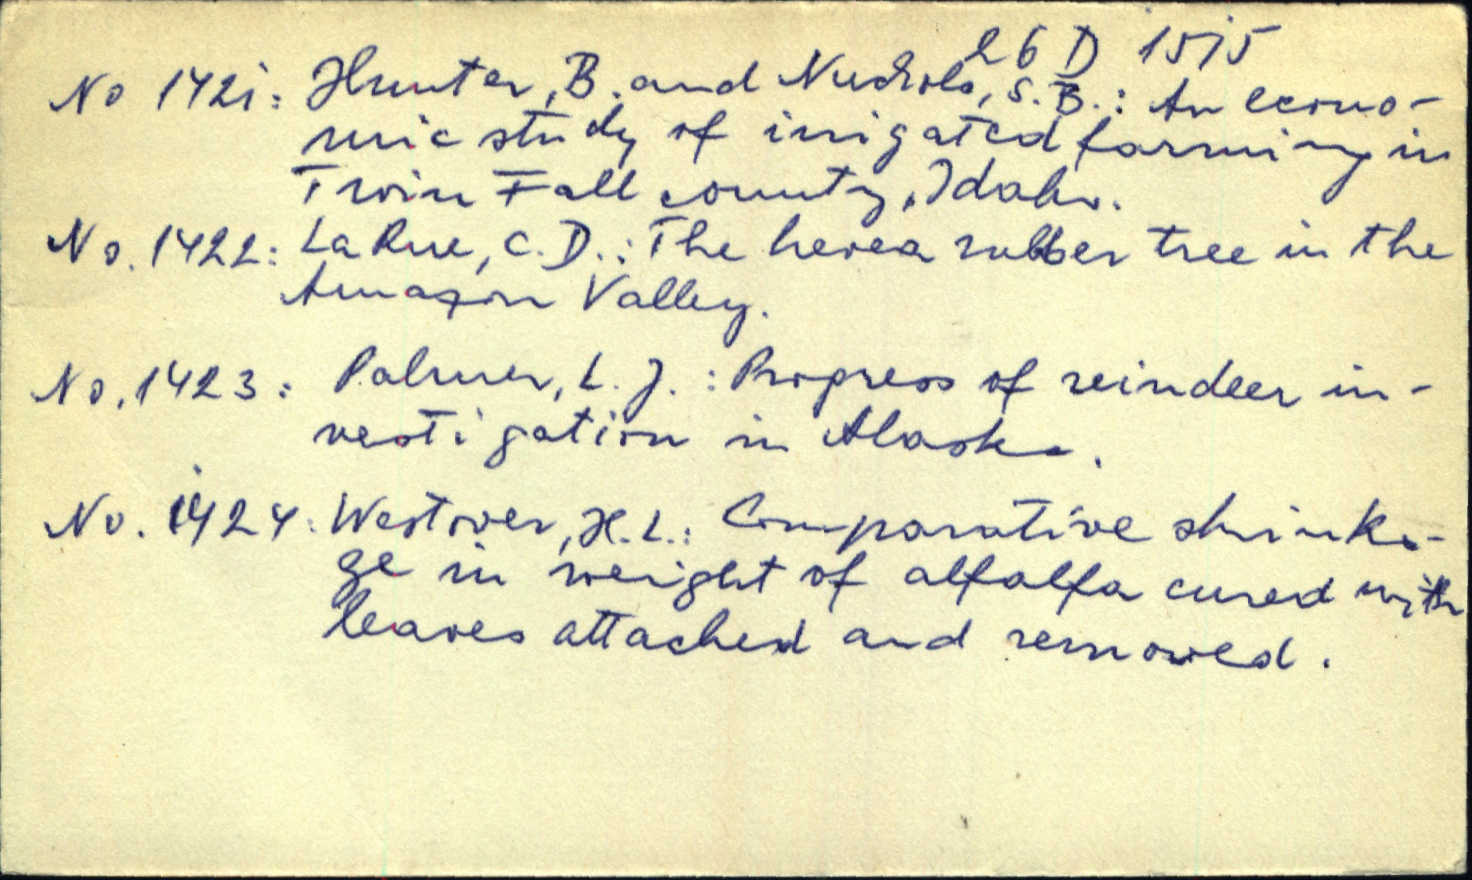 26 D 1515
No 1421: Hunter, B. and Nuckols, S. B.: An econo-
mic study of irrigated farming in
Twin Fall county, Idaho.
No. 1422: La Rue, C. D.: The hevea rubber tree in the
Amazon Valley.
No. 1423: Palmer, L. J.: Progress of reindeer in-
vestigation in Alaska.
No. 1424: Westover, H. L.: Comparative shrinka-
ge in weight of alfalfa cured with
leaves attached and removed.